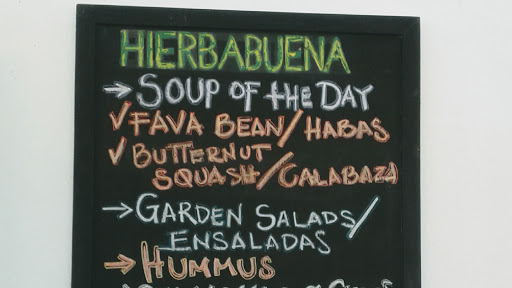 HIERBABUENA
→ SOUP OF the DAY
✓ FAVA BEAN/HABAS
✓ BUTTERNUT
SQUASH/CALABAZA
→ GARDEN SALADS/
ENSALADAS
→ HUMMUS